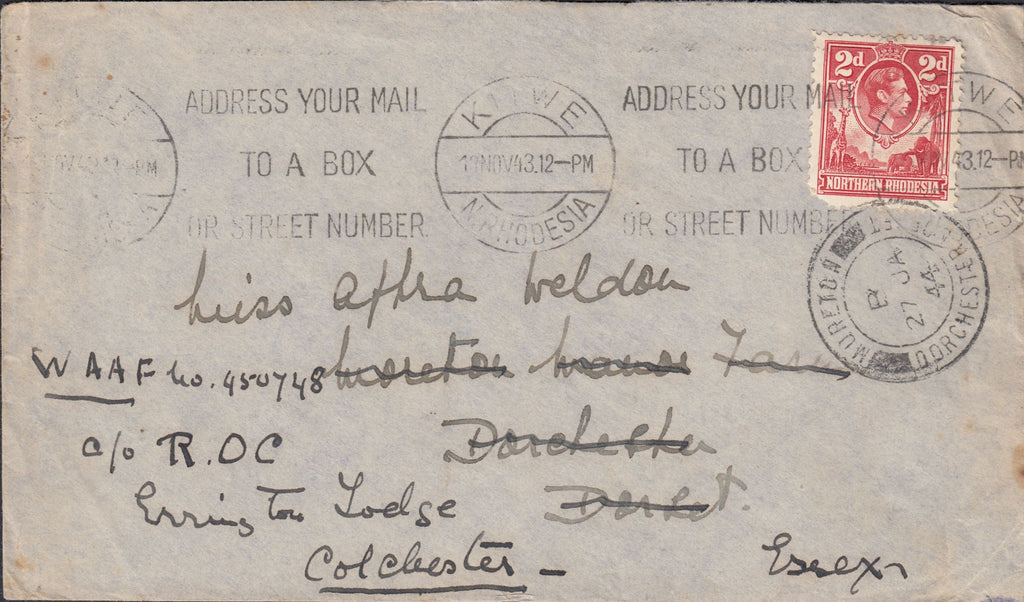 2d 2d
NORTHERN RHODESIA
ADDRESS YOUR MAIL
TO A BOX
OR STREET NUMBER.
KITWE
NOV43.12-PM
N. RHODESIA
ADDRESS YOUR MAIL
TO A BOX
OR STREET NUMBER
WE
V43.12-PM
MORETON
DORCHESTER
B
27 JA
44
Miss Aphra Weldon
Moreton Manor Farm
WAAF No. 450748
Dorchester
c/o R.O.C
Dorset.
Errington Lodge
Colchester - Essex